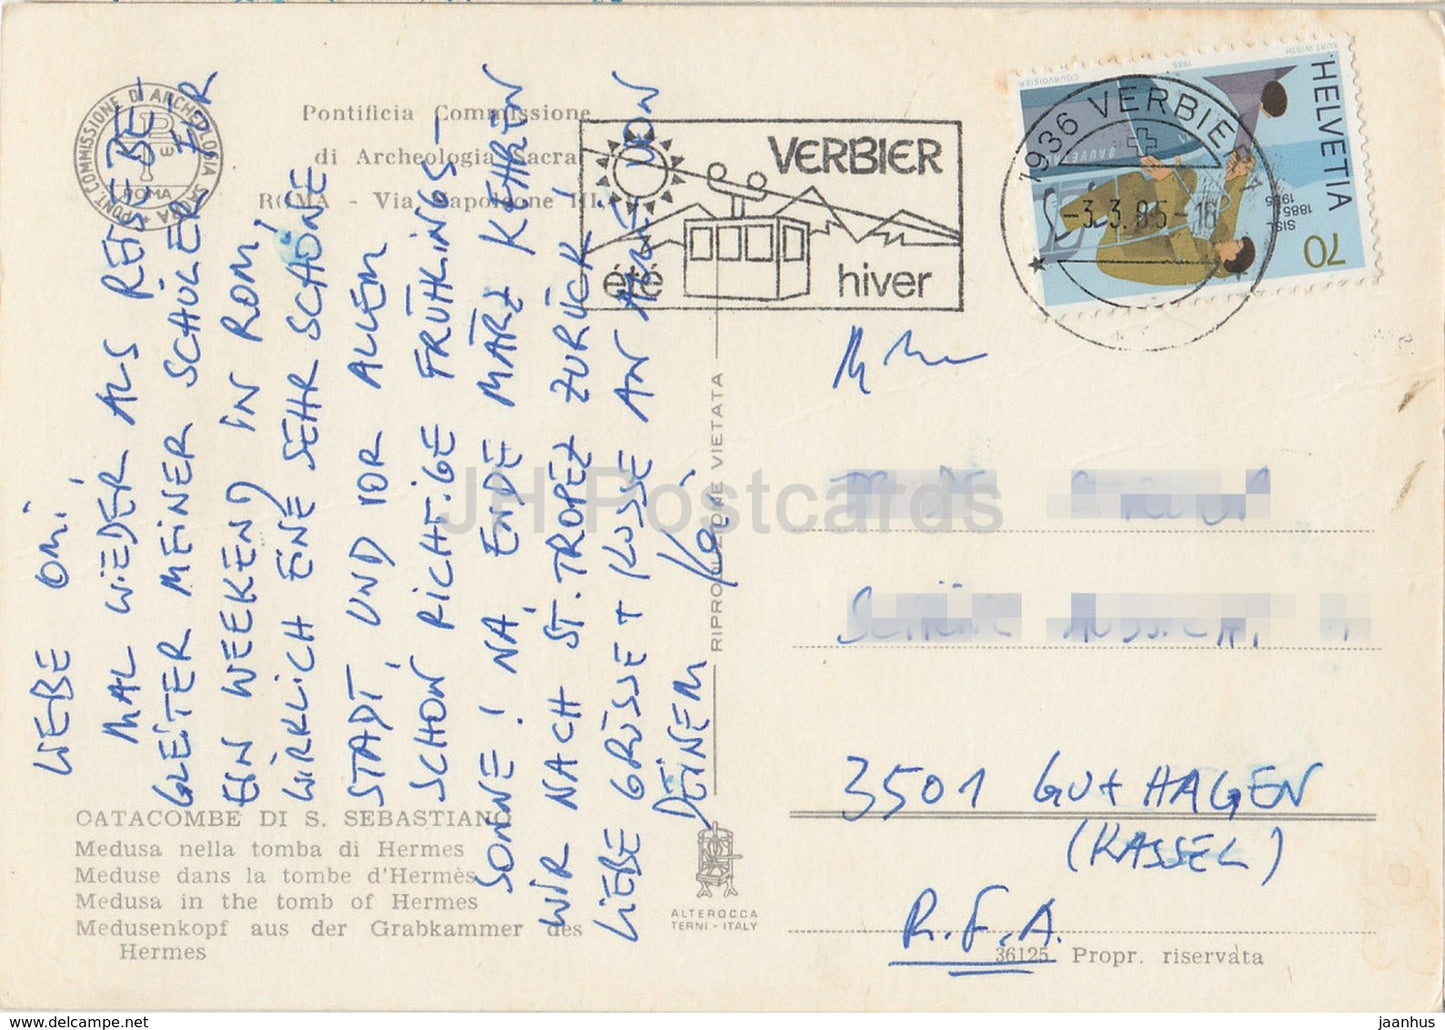 PONT. COMMISSIONE DI ARCHEOLOGIA SACRA
ROMA
Pontificia Commissione
di Archeologia Sacra
ROMA - Via Napoleone III,
LIEBE OMI,
MAL WIEDER ALS REISEBE-
GLEITER MEINER SCHÜLER FÜR
EIN WEEKEND IN ROM,
WIRKLICH EINE SEHR SCHÖNE
STADT, UND VOR ALLEM
SCHON RICHTIGE FRÜHLINGS-
SONNE! NA, ENDE MÄRZ KEHREN
WIR NACH ST. TROPEZ ZURÜCK!
LIEBE GRÜSSE + KÜSSE AN
VON
DEINEM Kai
CATACOMBE DI S. SEBASTIANO
Medusa nella tomba di Hermes
Meduse dans la tombe d'Hermès
Medusa in the tomb of Hermes
Medusenkopf aus der Grabkammer des
Hermes
RIPRODUZIONE VIETATA
ALTEROCCA
TERNI - ITALY
VERBIER
été
hiver
1936 VERBIER
-3.3.85-16
HELVETIA
70
SISL
1885
1985
COURVOISIER
1985
KURT WIRTH
3501 GUXHAGEN
(KASSEL)
R.F.A.
36125 Propr. riservata
JH Postcards
www.delcampe.net
jaanhus